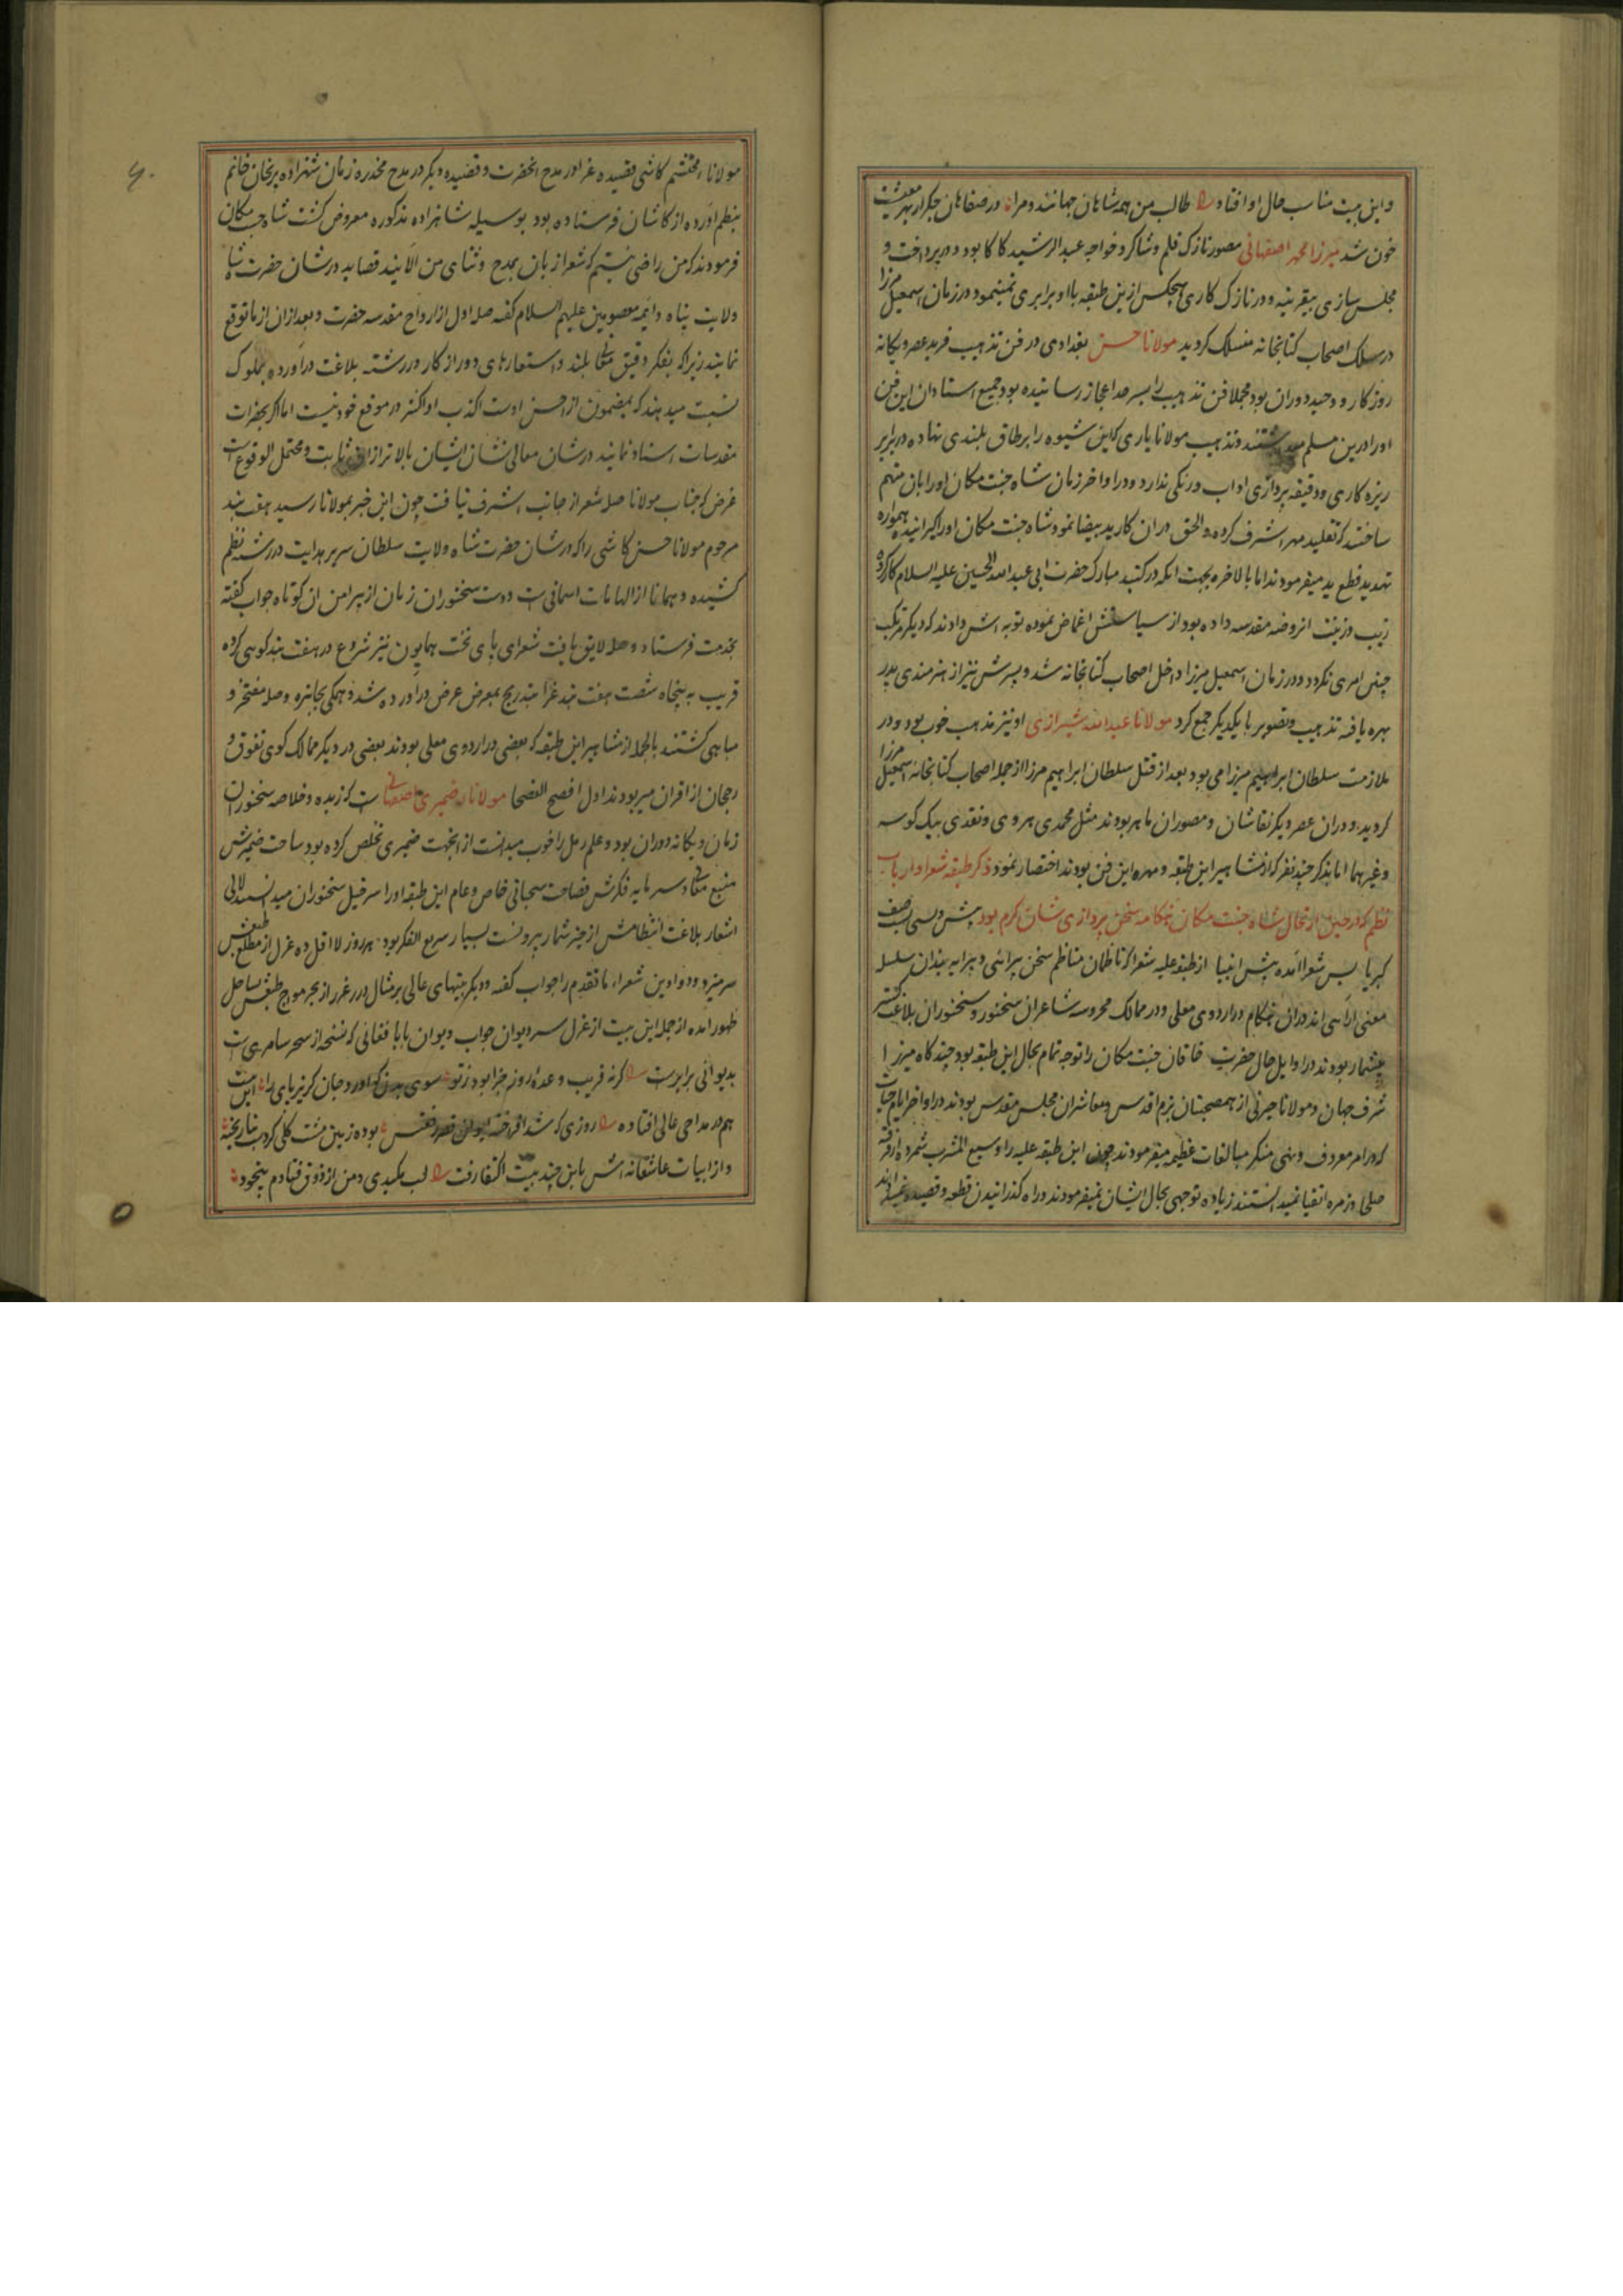 و این بیت مناسب حال او افتاده طالب من همه شاهان جهانند و مرا در صفاهان جگر از بهر معیشت
خون شد میرزا محمد اصفهانی مصور نازک قلم و شاکرد خواجه عبد الرشید کاکا بود و در پرداخت و
مجلس سازی بیقرینه و در نازک کاری هیچکس ازین طبقه با او برابری نمینمود در زمان اسمعیل میرزا
در سلک اصحاب کتابخانه منسلک کردید مولانا حسن بغدادی در فن تذهیب فرید عصر و یکانه
روزکار و وحید دوران بود مجملا فن تذهیب را بسرحد اعجاز رسانیده بود جمیع استادان این فن
او را درین مسلم میداشتند و تذهیب مولانا یاری که این شیوه را بر طاق بلندی نهاده در برابر
ریزه کاری و دقیقه پردازی او آب و رنکی ندارد و در اواخر زمان شاه جنت مکان او را بان متهم
ساختند که تقلید مهر اشرف کرده و الحق در ان کار ید بیضا نمود شاه جنت مکان او را کیرانیده همواره
تهدید قطع ید میفرمودند اما بالاخره بجهت انکه در کنبد مبارک حضرت ابی عبد الله الحسین علیه السلام کار کرده
زیب و زینت انروضه مقدسه داده بود از سیاستش اغماض نموده توبه اش دادند که دیکر مرتکب
چنین امری نکردد و در زمان اسمعیل میرزا داخل اصحاب کتابخانه شد و پسرش نیز از هنرمندی پدر
بهره یافته تذهیب و تصویر با یکدیکر جمع کرد مولانا عبد الله شیرازی او نیز مذهب خوب بود و در
ملازمت سلطان ابراهیم میرزا می بود بعد از قتل سلطان ابراهیم میرزا از جمله اصحاب کتابخانه اسمعیل میرزا
کردید و در ان عصر دیکر نقاشان و مصوران ماهر بودند مثل محمدی هروی و نقدی بیک کوسه
و غیرهما اما بذکر چند نفر که از مشاهیر این طبقه و مهره این فن بودند اختصار نمود ذکر طبقه شعرا و ارباب
نظم که در حین ارتحال شاه جنت مکان هنکامه سخن پردازی شان کرم بود پیش و پسی بست صف
کبریا پس شعرا آمده پیش انبیا از طبقه علیه شعرا که ناظمان مناظم سخن پیرائی و پیرایه بندان سلسله
معنی ارائی اند در ان هنکام در اردوی معلی و در ممالک محروسه شاعران سخنور و سخنوران بلاغت کستر
بیشمار بودند در اوایل حال حضرت خاقان جنت مکان را توجه تمام بحال این طبقه بود چند کاه میرزا
شرف جهان و مولانا حیرتی از همصحبتان بزم اقدس و معاشران مجلس مقدس بودند در اواخر ایام حیات
که در امر معروف و نهی منکر مبالغات عظیمه میفرمودند چون این طبقه علیه را وسیع المشرب شمرده از فرقه
صلحا و زمره اتقیا نمیدانستند زیاده توجهی بحال ایشان نمیفرمودند و راه کذرانیدن قطعه و قصیده نمیدادند
مولانا محتشم کاشی قصیده غرا در مدح انحضرت و قصیده دیکر در مدح مخدره زمان شهزاده پریخان خانم
بنظم آورده از کاشان فرستاده بود بوسیله شاهزاده مذکوره معروض کشت شاه جنت مکان
فرمودند که من راضی نیستم که شعرا زبان بمدح و ثنای من آلایند قصاید در شان حضرت شاه
ولایت پناه و ایمه معصومین علیهم السلام کفته صله اول از ارواح مقدسه حضرت و بعد از ان از ما توقع
نمایند زیرا که بفکر دقیق معانی بلند و استعارهای دور از کار در رشته بلاغت درآورده بملوک
نسبت میدهند که بمضمون از احسن اوست اکذب او اکثر در موقع خود نیست اما اکر بحضرات
مقدسات اسناد نمایند در شان معالی نشان ایشان بالاتر از ان ثابت و محتمل الوقوع است
غرض که جناب مولانا صله شعر از جانب اشرف نیافت چون این خبر بمولانا رسید هفت بند
مرحوم مولانا حسن کاشی را که در شان حضرت شاه ولایت سلطان سریر هدایت در رشته نظم
کشیده و همانا از الهامات اسمانی است و دست سخنوران زمان از پیرامن ان کوتاه جواب کفته
بخدمت فرستاد و صله لایق یافت شعرای پای تخت همایون نیز شروع در هفت بند کوئی کرده
قریب به پنجاه شصت هفت بند غرا بتدریج بمعرض عرض درآورده شد و همکی بجایزه و صله مفتخر و
مباهی کشتند بالجمله از مشاهیر این طبقه که بعضی در اردوی معلی بودند بعضی در دیکر ممالک کوی تفوق و
رجحان از اقران میربودند اول افصح الفصحا مولانا ضمیری اصفهانی است که زبده و خلاصه سخنوران
زمان و یکانه دوران بود و علم رمل را خوب میدانست از انجهت ضمیری تخلص کرده بود ساحت ضمیرش
منبع معانی و سرمایه فکرش فصاحت سحبانی خاص و عام این طبقه او را سرخیل سخنوران میدانستند لالی
اشعار بلاغت انتظامش از حیز شمار بیرونست بسیار سریع الفکر بود هر روز لا اقل ده غزل از مطلع طبعش
سر میزد و دواوین شعراء ما تقدم را جواب کفته و دیکر بیتهای عالی بر مثال درر غرر از بحر مواج طبعش بساحل
ظهور آمده از جمله این بیت از غزل سر دیوان جواب دیوان بابا فغانی که نسخه از سحر سامری است
بدیوانی برابرست کر نه فریب وعده روز جزا بود ز تو سوی بدن که آورد جان کریزپای را این بیت
هم در مداحی عالی افتاده روزی که شد افراخته ایوان قصر رفعتش بوده زمین مشت کلی کز دست بنا ریخته
و از ابیات عاشقانه اش باین چند بیت اکتفا رفت لب مکیدی و من از ذوق فتادم بیخود